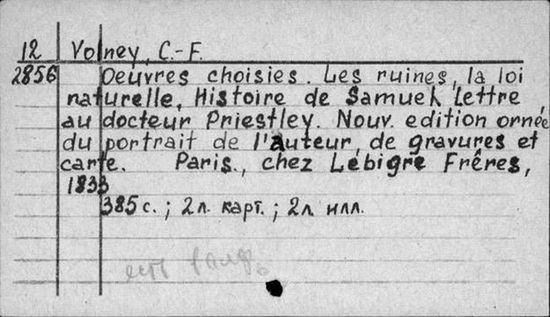 12 Volney, C.-F.
2856 Oeuvres choisies. Les ruines, la loi
naturelle, Histoire de Samuel. Lettre
au docteur Priestley. Nouv. edition ornée
du portrait de l'auteur, de gravures et
carte. Paris., chez Lebigre Frêres,
1833
385 с.; 2 л. карт.; 2 л. илл.
есть